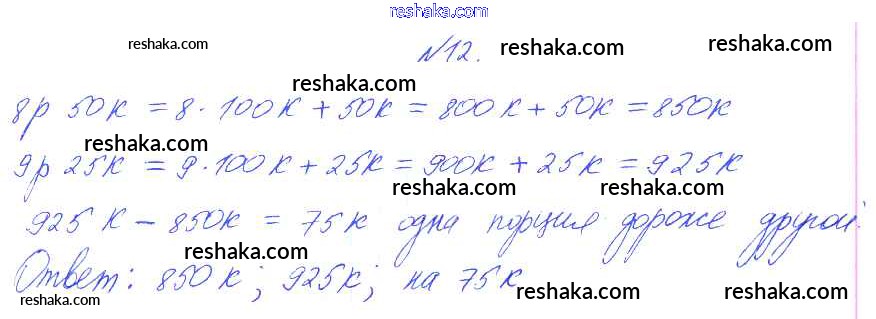 reshaka.com
reshaka.com №12. reshaka.com reshaka.com
reshaka.com
8р 50к = 8 · 100к + 50к = 800к + 50к = 850к
reshaka.com reshaka.com
9р 25к = 9 · 100к + 25к = 900к + 25к = 925к
reshaka.com reshaka.com
925 к - 850к = 75к одна порция дороже другой.
reshaka.com
Ответ: 850к; 925к; на 75к
reshaka.com reshaka.com reshaka.com